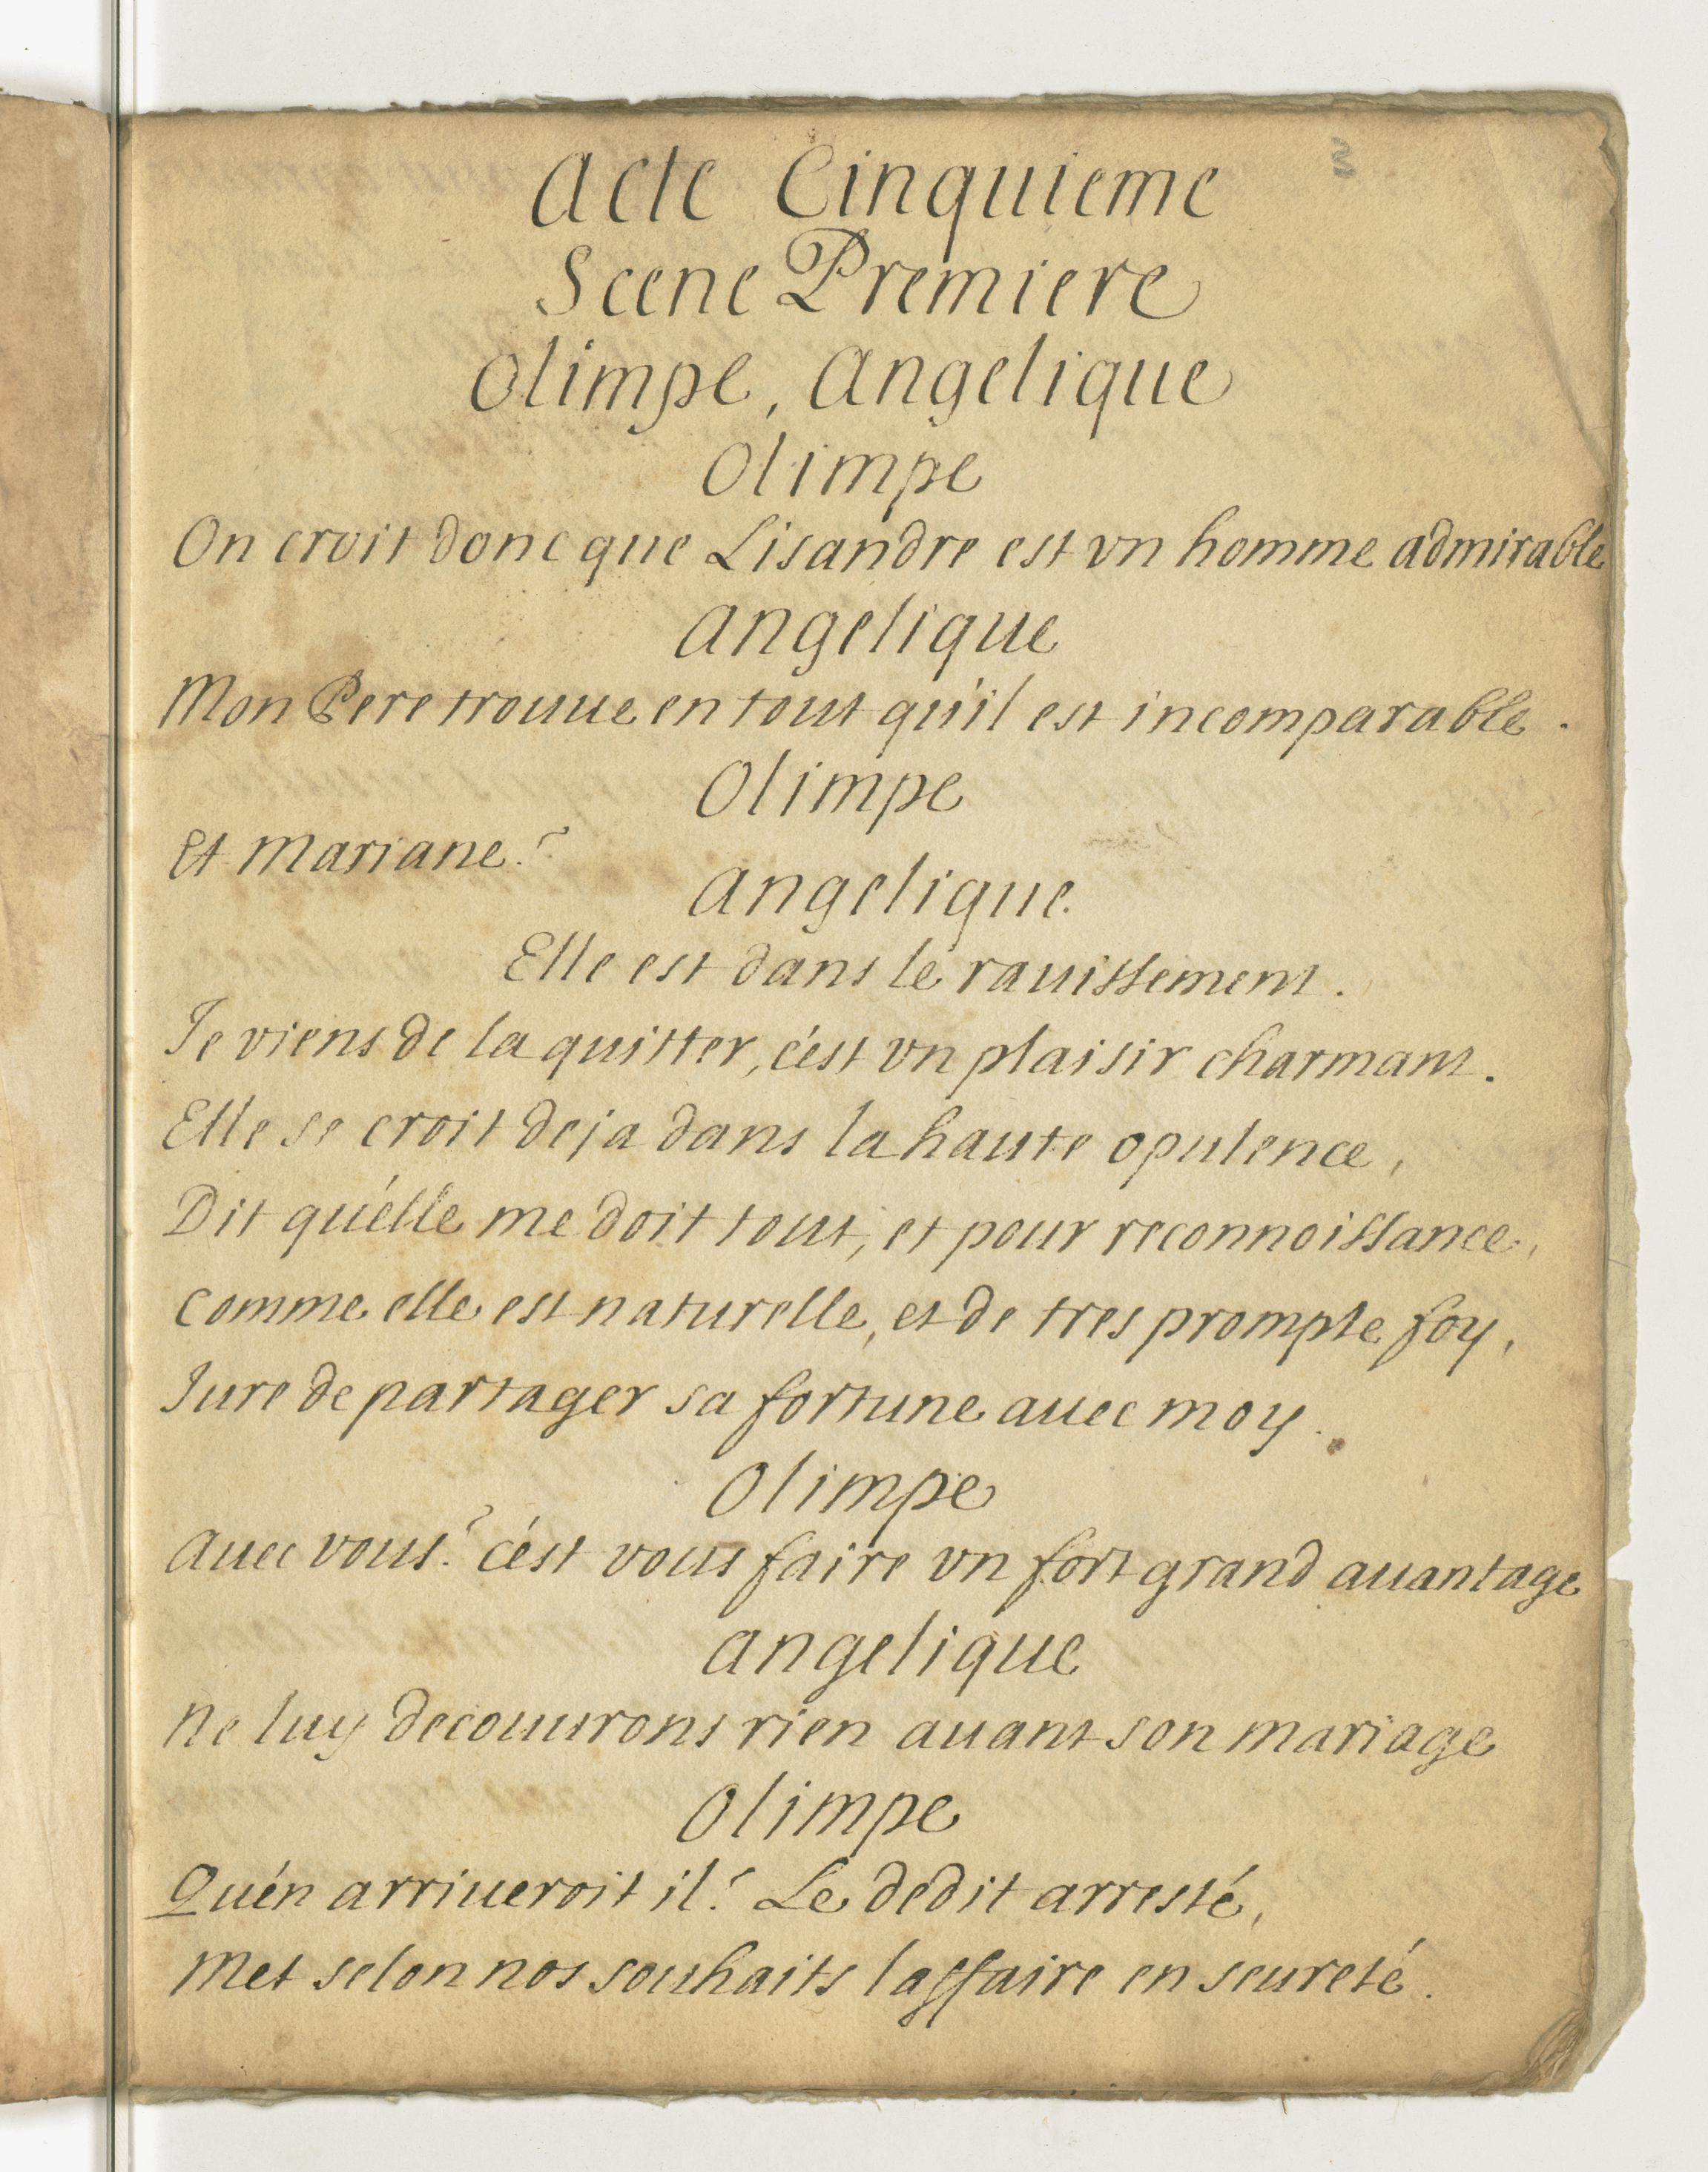 Acte Cinquieme
Scene Premiere
Olimpe, Angelique
Olimpe
On croit donc que Lisandre est vn homme admirable
Angelique
Mon Pere trouue en tout qu'il est incomparable.
Olimpe
Et Mariane?
Angelique.
Elle est dans le rauissement.
Je viens de la quitter, c'est vn plaisir charmant.
Elle se croit deja dans la haute opulence,
Dit qu'elle me doit tout, et pour reconnoissance,
Comme elle est naturelle, et de tres prompte foy,
Jure de partager sa fortune auec moy.
Olimpe
Auec vous? c'est vous faire vn fort grand auantage
Angelique
Ne luy decouurons rien auant son mariage
Olimpe
Qu'en arriueroit il? Le dedit arresté,
Met selon nos souhaits laffaire en seureté.